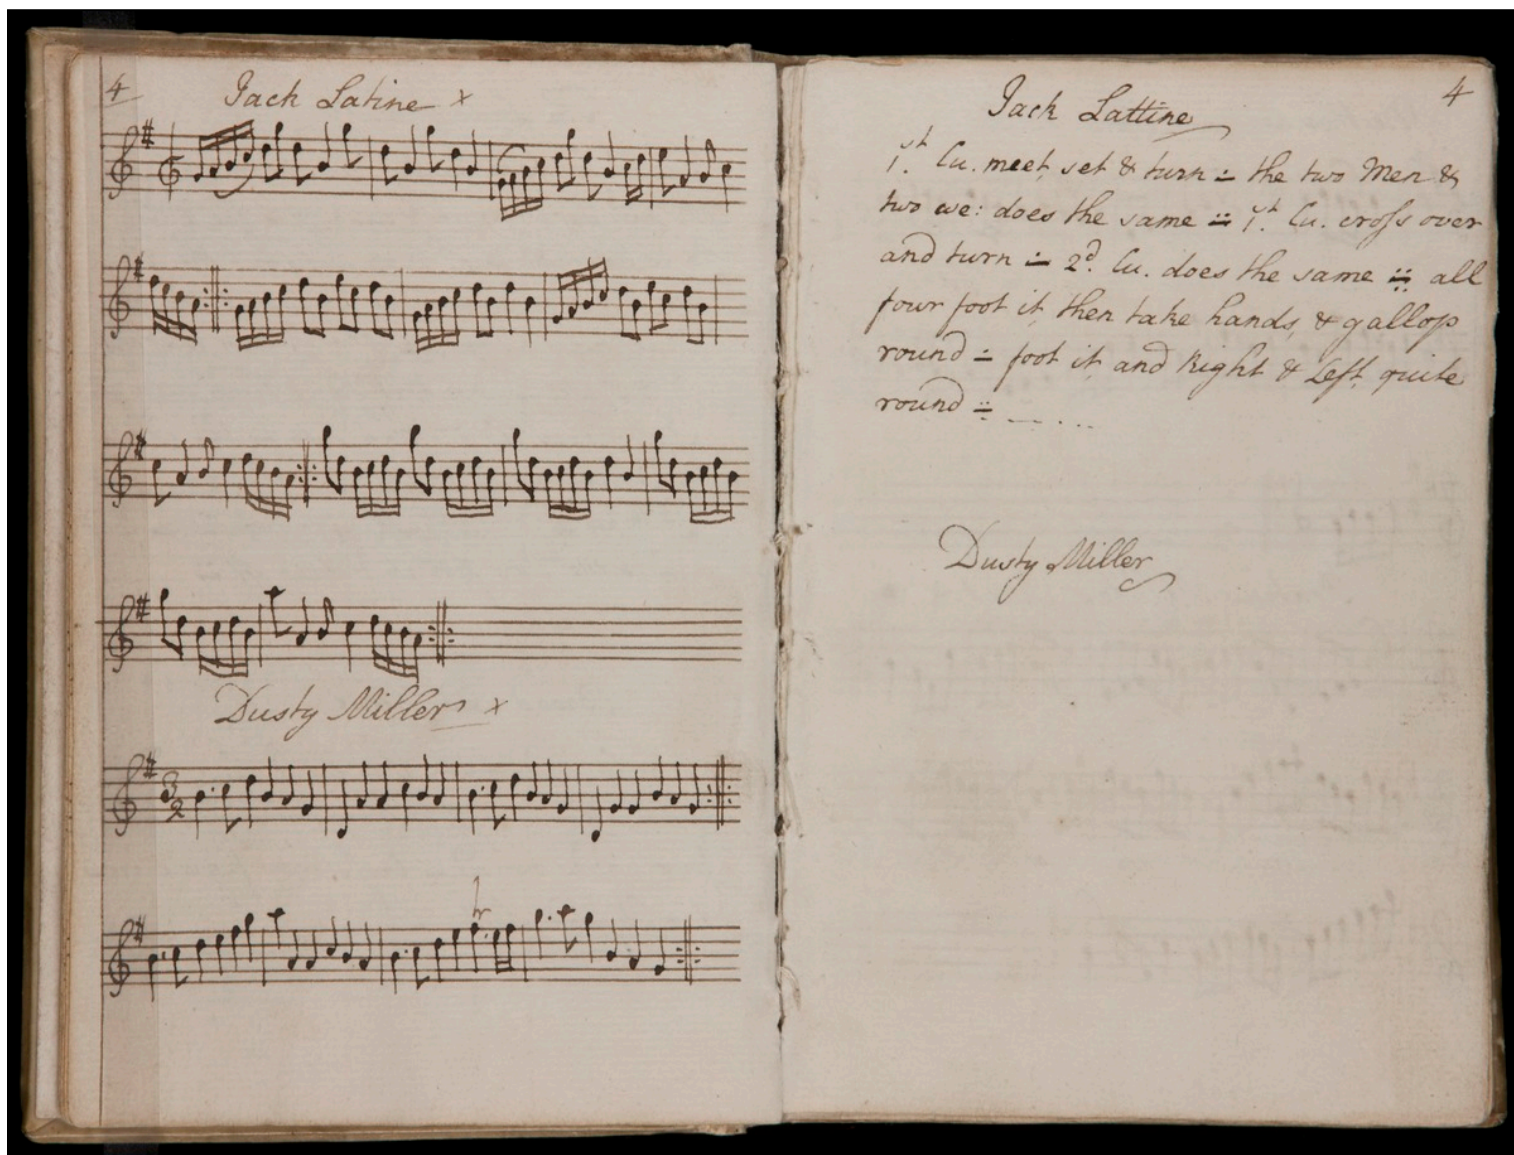 4
Jack Latine x
3
2
Dusty Miller x
tr
4
Jack Lattine
1.st Cu. meet, set & turn ÷ the two Men &
two we: does the same ⸬ 1.st Cu. cross over
and turn ÷ 2d. Cu. does the same ⸬ all
four foot it then take hands, & gallop
round ÷ foot it and Right & Left, quite
round ÷
Dusty Miller